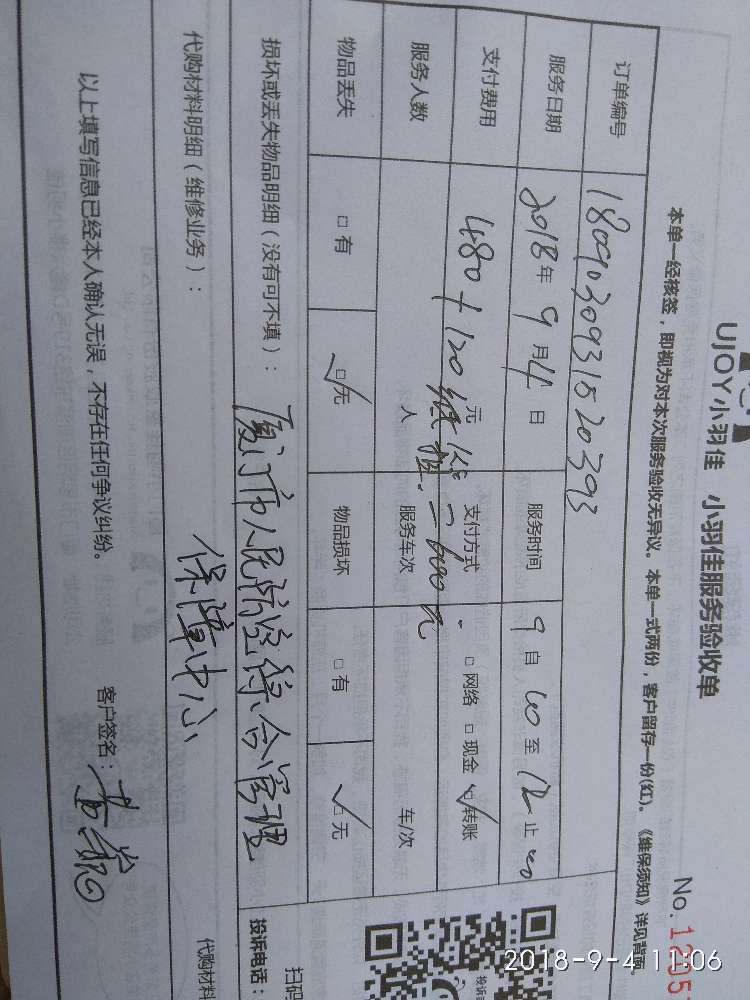 UJOY小羽佳 小羽佳服务验收单
No. 1295
本单一经核签，即视为对本次服务验收无异议。本单一式两份，客户留存一份(红)。《维保须知》详见背面
订单编号 1809030931520393
服务日期 2018年9月4日 服务时间 9自00至12止00
支付费用 480+120 元 =600元 支付方式 □网络 □现金 ☑转账
服务人数 人 服务车次 车/次
物品丢失 □有 ☑无 物品损坏 □有 ☑无
损坏或丢失物品明细（没有可不填）： 厦门市人民防空综合管理
保障中心
代购材料明细（维修业务）：
代购材料
以上填写信息已经本人确认无误，不存在任何争议纠纷。
客户签名：
投诉电话：
扫码
投诉
2018-9-4 11:06